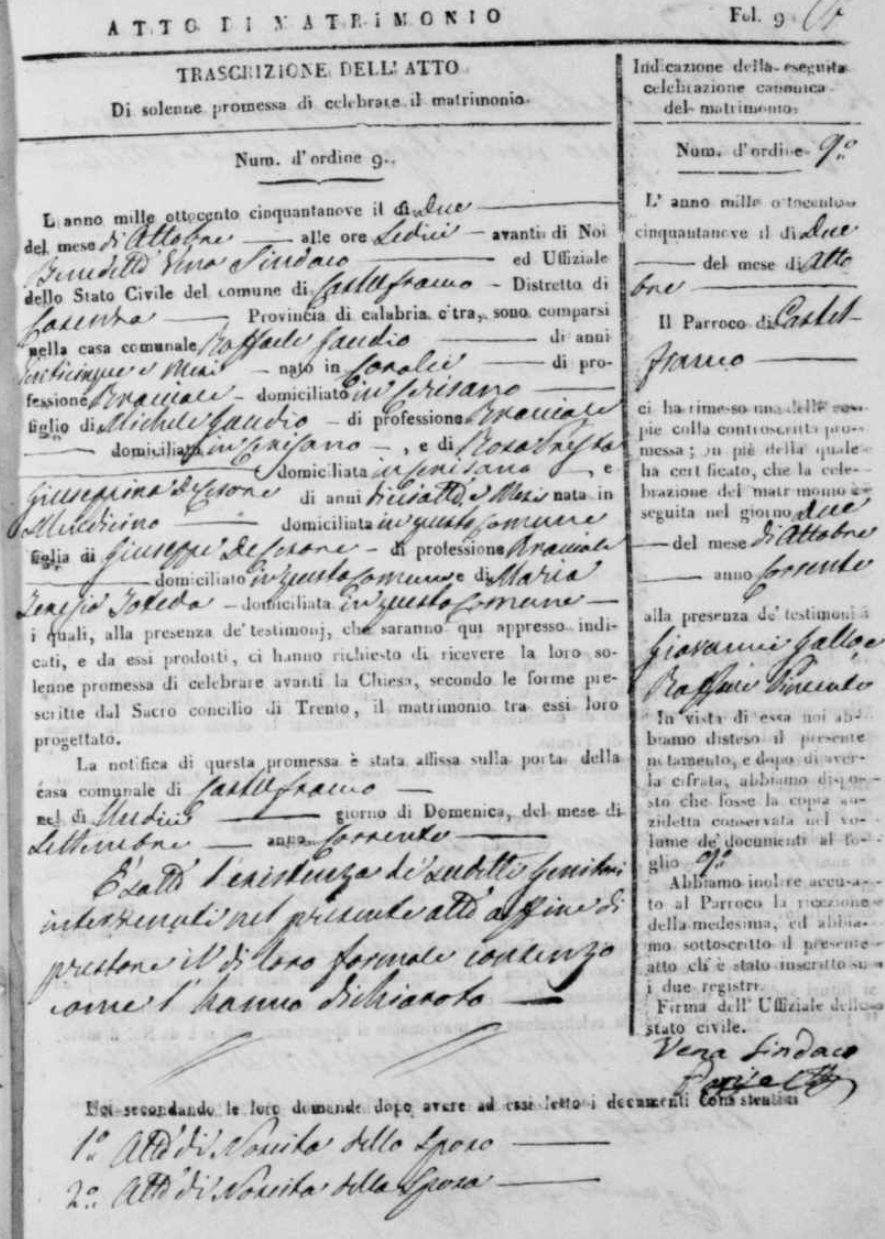 ATTO DI MATRIMONIO
Fol. 9
TRASCRIZIONE DELL' ATTO
Di solenne promessa di celebrare il matrimonio.
Num. d'ordine 9.
L anno mille ottocento cinquantanove il dì Due
del mese di Ottobre alle ore Sedici avanti di Noi
Benedetto Vena Sindaco ed Uffiziale
dello Stato Civile del comune di Castelfranco Distretto di
Cosenza Provincia di calabria citra, sono comparsi
nella casa comunale Raffaele Gaudio di anni
venticinque e Mesi nato in di pro-
fessione Bracciale domiciliato in Cerisano
figlio di Michele Gaudio di professione Bracciale
domiciliato in Cerisano, e di Rosa Presta
domiciliata in Cerisano, e
Giuseppina De Cesare di anni diciotto e Mesi nata in
Mendicino domiciliata in questo Comune
figlia di Giuseppe De Cesare di professione Bracciale
domiciliato in questo Comune e di Maria
Teresia domiciliata in questo Comune
i quali, alla presenza de' testimonj, che saranno qui appresso indi-
cati, e da essi prodotti, ci hanno richiesto di ricevere la loro so-
lenne promessa di celebrare avanti la Chiesa, secondo le forme pre-
scritte dal Sacro concilio di Trento, il matrimonio tra essi loro
progettato.
La notifica di questa promessa è stata affissa sulla porta della
casa comunale di Castelfranco
nel dì Undici giorno di Domenica, del mese di
Settembre anno Corrente
E' satto l'esistenza de' suddetti Genitori
intervenuti nel presente atto affine di
prestare il di loro formale consenzo
come l'hanno dichiarato
Noi secondando le loro demande dopo avere ad essi letto i documenti consistenti
1.º Atto di Nascita dello Sposo
2.º Atto di Nascita della Sposa
Indicazione della eseguita
celebrazione canonica
del matrimonio.
Num. d'ordine 9.º
L' anno mille ottocento
cinquantanove il dì Due
del mese di Otto
bre
Il Parroco di Castel-
franco
ci ha rimesso una delle co-
pie colla controscritta pro-
messa; in piè della quale
ha certificato, che la cele-
brazione del matrimonio è
seguita nel giorno due
del mese di Ottobre
anno Corrente
alla presenza de' testimoni
Giovanni Gallo e
Raffaele
In vista di essa noi ab-
biamo disteso il presente
notamento, e dopo di aver-
la cifrata, abbiamo dispo-
sto che fosse la copia su-
zidetta conservata nel vo-
lume de' documenti al fo-
glio 9.º
Abbiamo inoltre accusa-
to al Parroco la ricezione
della medesima, ed abbia-
mo sottoscritto il presente
atto ch' è stato inscritto su
i due registri.
Firma dell' Uffiziale dello
stato civile.
Vena Sindaco